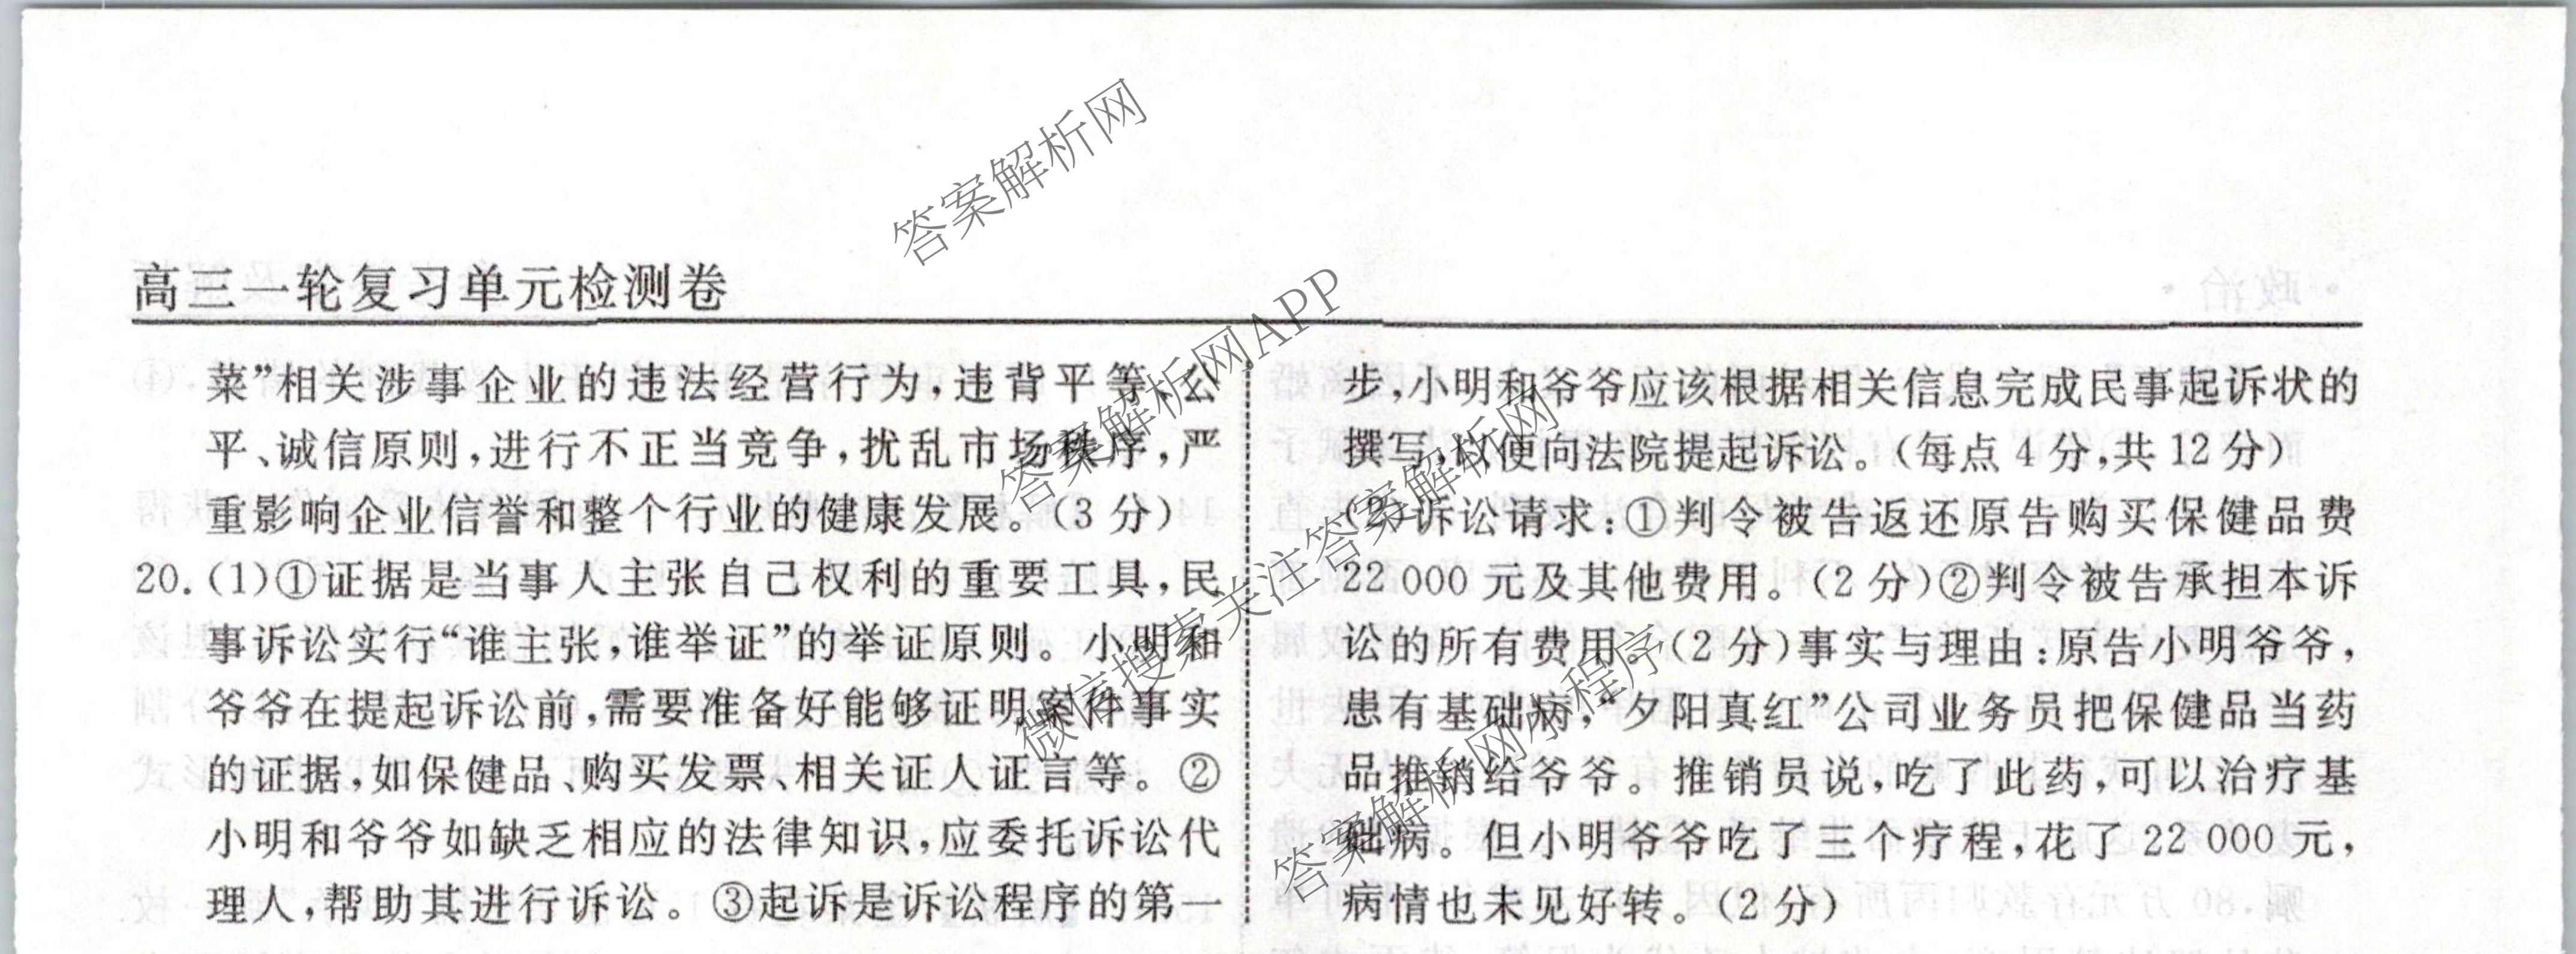 高三一轮复习单元检测卷
菜”相关涉事企业的违法经营行为,违背平等、公
平、诚信原则,进行不正当竞争,扰乱市场秩序,严
重影响企业信誉和整个行业的健康发展。(3分)
20.(1)①证据是当事人主张自己权利的重要工具,民
事诉讼实行“谁主张,谁举证”的举证原则。小明和
爷爷在提起诉讼前,需要准备好能够证明案件事实
的证据,如保健品、购买发票、相关证人证言等。②
小明和爷爷如缺乏相应的法律知识,应委托诉讼代
理人,帮助其进行诉讼。③起诉是诉讼程序的第一
步,小明和爷爷应该根据相关信息完成民事起诉状的
撰写,以便向法院提起诉讼。(每点4分,共12分)
(2)诉讼请求:①判令被告返还原告购买保健品费
22 000元及其他费用。(2分)②判令被告承担本诉
讼的所有费用。(2分)事实与理由:原告小明爷爷,
患有基础病,“夕阳真红”公司业务员把保健品当药
品推销给爷爷。推销员说,吃了此药,可以治疗基
础病。但小明爷爷吃了三个疗程,花了22 000元,
病情也未见好转。(2分)
答案解析网
答案解析网APP
微信搜索关注答案解析网
答案解析网小程序